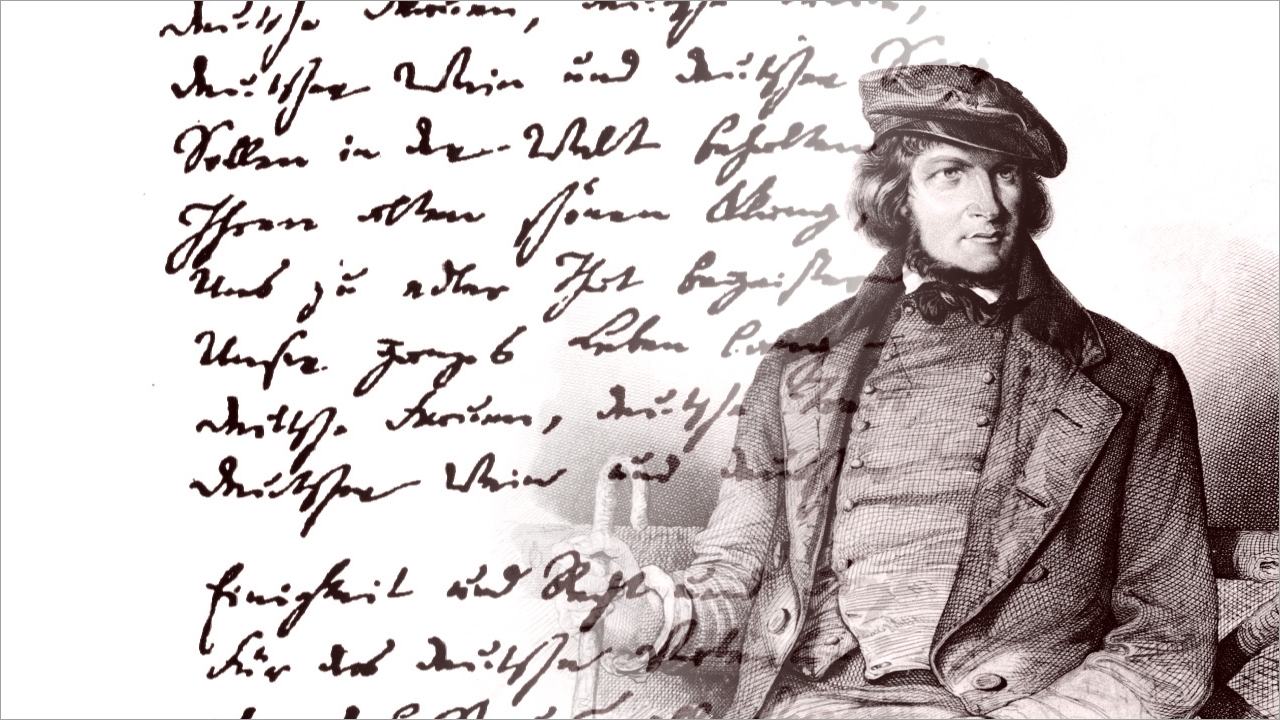 deutsche Frauen, deutsche Treue,
deutscher Wein und deutscher Sang
Sollen in der Welt behalten
Ihren alten schönen Klang,
Uns zu edler That begeistern
Unser ganzes Leben lang –
deutsche Frauen, deutsche Treue
deutscher Wein und deutscher
Einigkeit und Recht und
Für das deutsche Vaterland